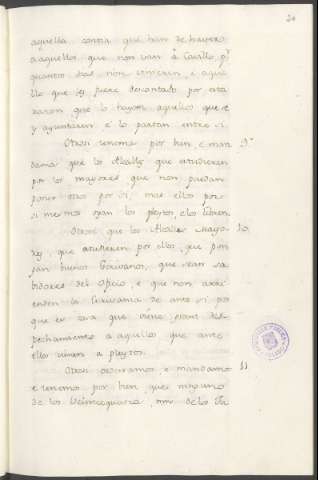 24
aquella contia que han de haver
a aquellos que non van á Cavallo, p.r
quantos dias non servieren, e aque
llo que les fuere descontado por esta
razon, que lo hayan aquellos que se
y ayuntaren e lo partan entre si.
Otrosi tenemos por bien e man 9.
damos que los Alcalles que estudieren
por los mayores que non puedan
poner otros por si, mas ellos por
si mesmos oyan los pleytos, e los libren.
Otrosi que los Alcalles Mayo 10.
res, que estudieren por ellos, que pon
gan buenos Escrivanos, que sean sa
bidores del Oficio, e que non
la Escrivania de ante si por
que es cosa que viene grant des
pechamiento a aquellos que ante
ellos vienen a pleytos.
Otrosi ordenamos e mandamos 11.
e tenemos por bien que ninguno
de los Veintequatro, nin de los